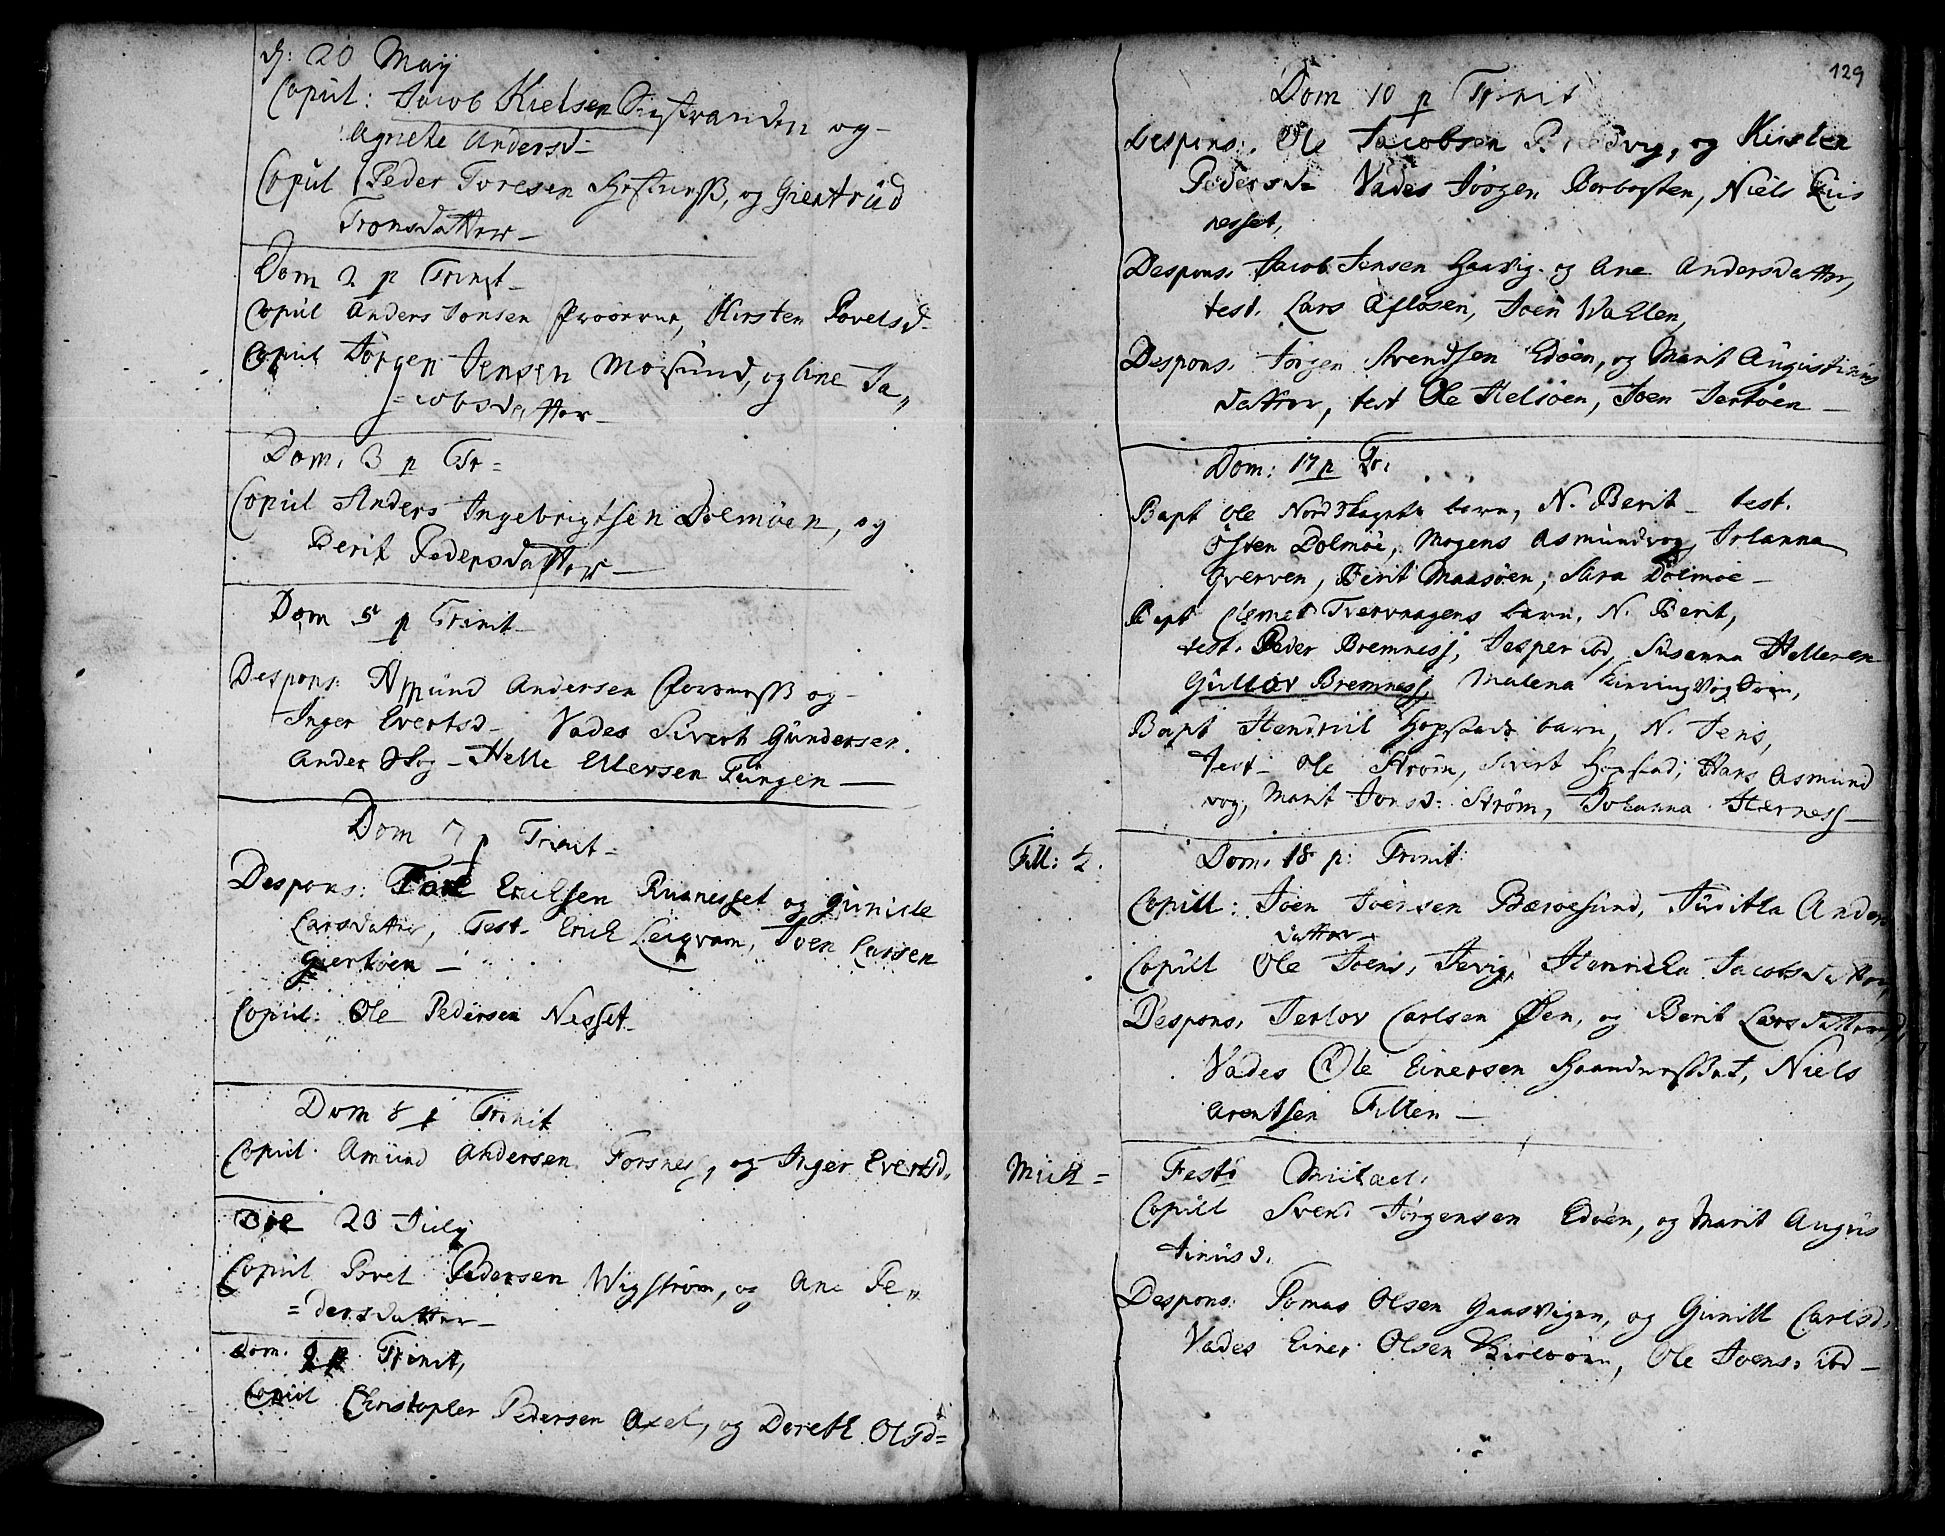 d: 20 Maÿ
Copul: Jacob Kielsen og
Agnete Andersd-
Copul Peder Toresen og Giertrud
Tronsdatter-
Dom 2 p Trinit-
Copul Anders Jonsen Kirsten Povelsd-
Copul Jörgen Jensen Mosund, og Ane Ja„
=cobsdatter-
Dom. 3 p Tr=
Copul Anders Ingebrigtsen Dolmöen, og
Berit Pedersdatter-
Dom 5 p Trinit-
Despons: Amund Andersen og-
Inger Evertsd- Vades Sivert Gundersen.
Ander Skog- Helle Ellevsen Tungen-
Dom 7 p Trinit-
Despons: Tore Erichsen Rusnesset og Gunille
Larsdatter, Test- Erich Leiqvam, Joen Larsen
Giertöen-
Copul: Ole Pedersen Nesset-
Dom 8 p Trinit
Copul. Amund Andersen Forsness, og Inger Evertsd.
Die 23 July
Copul Povel Pedersen Wigström, og Ane Pe„
=dersdatter-
Dom. 9 p Trinit,
Copul Christopher Pedersen Axet, og Doreth Olsd=
129
Dom 10 p Trinit
Despons. Ole Jacobsen og Kirsten
Pedersd- Vades Jörgen Borbosten, Niels
nesset,
Despons. Jacob Jensen Haavig. og Ane Andersdatter,
test. Lars Aflosen, Joen Wahlen,
Despons. Jörgen Svendsen Edöen, og Marit Augustinus
datter, test Ole Helsöen, Joen Jertöen-
Dom: 17 p Tr.
Bapt Ole Nordskagets barn, N. Berit- test.
Östen Dolmöe, Mogens Asmundvog, Johanna
Qverven, Berit Maasöen, Sara Dolmöe-
Bapt Tvervaagens barn. N. Berit,
test. Peder Bremness, Jesper ibd, Susanna Helleren
Gulløv Bremness, Malena
Bapt Hendrich Hopstads barn, N. Jens,
test- Ole Ström, Sivert Hopstad, Hans Asmund
vog, Marit Jonsd: Ström, Johanna Sterness-
Fill: ½. Dom. 18 p: Trinit:
Copull: Joen Joensen Bævesund, Juditha Anders
datter-
Copull Ole Joens. Jevig, Henricha Jacobsdatter,
Despons. Jerlov Carlsen Øen, og Berit Larsdatter,
Vades Ole Einersen Niels
Arentsen Fillen-
Mich= Festo Michael.
Copull Svend Jörgensen Edöen, og Marit Augus
tinusd.
Despons: Tomas Olsen Gaasvigen, og Gunill Carlsd.
Vades Einer Olsen Ole Joens. ibd-